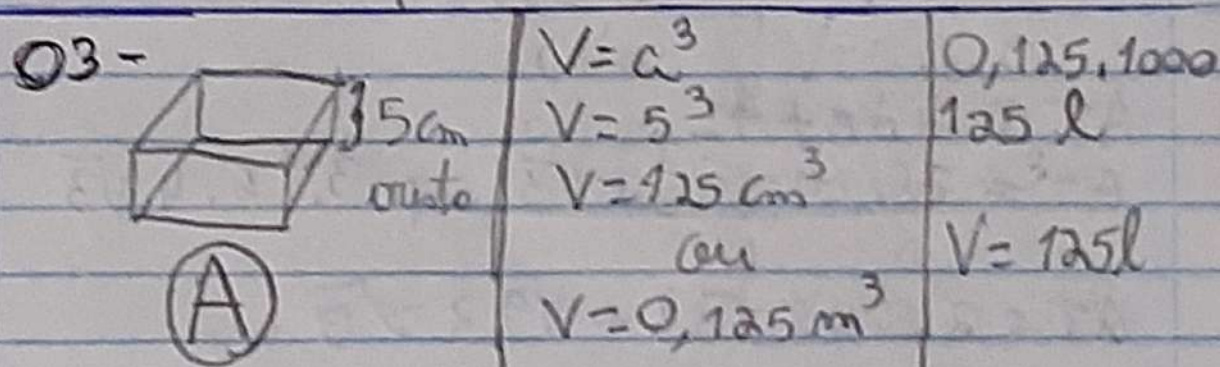 03-
5cm
V=a³
V=5³
V=125 cm³
ou
V=0,125 m³
0,125.1000
125 l
V=125l
A